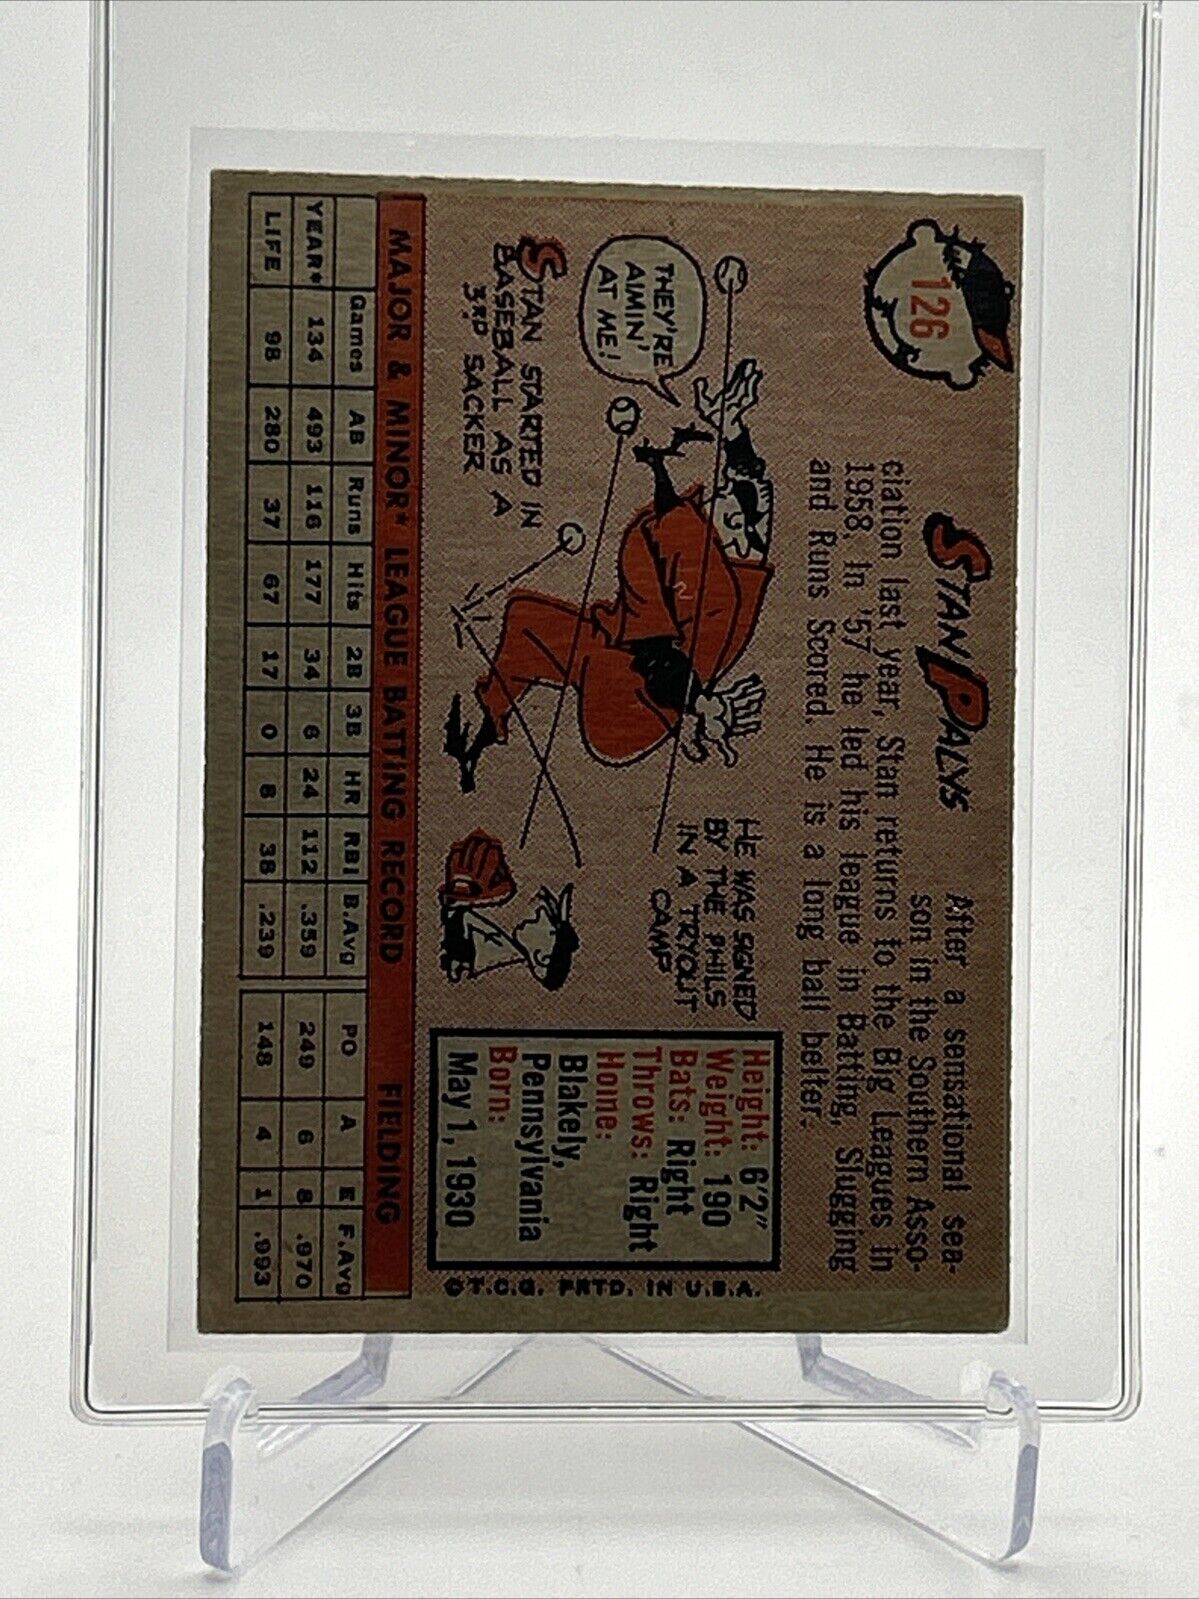 126
STAN PALYS
After a sensational sea-
son in the Southern Asso-
ciation last year, Stan returns to the Big Leagues in
1958. In '57 he led his league in Batting, Slugging
and Runs Scored. He is a long ball belter.
THEY'RE
AIMIN'
AT ME!
STAN STARTED IN
BASEBALL AS A
3RD SACKER
HE WAS SIGNED
BY THE PHILS
IN A TRYOUT
CAMP
Height: 6'2"
Weight: 190
Bats: Right
Throws: Right
Home:
Blakely,
Pennsylvania
Born:
May 1, 1930
© T.C.G. PRTD. IN U.S.A.
MAJOR & MINOR* LEAGUE BATTING RECORD FIELDING
Games AB Runs Hits 2B 3B HR RBI B.Avg PO A E F.Avg
YEAR* 134 493 116 177 34 6 24 112 .359 249 6 8 .970
LIFE 98 280 37 67 17 0 8 38 .239 148 4 1 .993